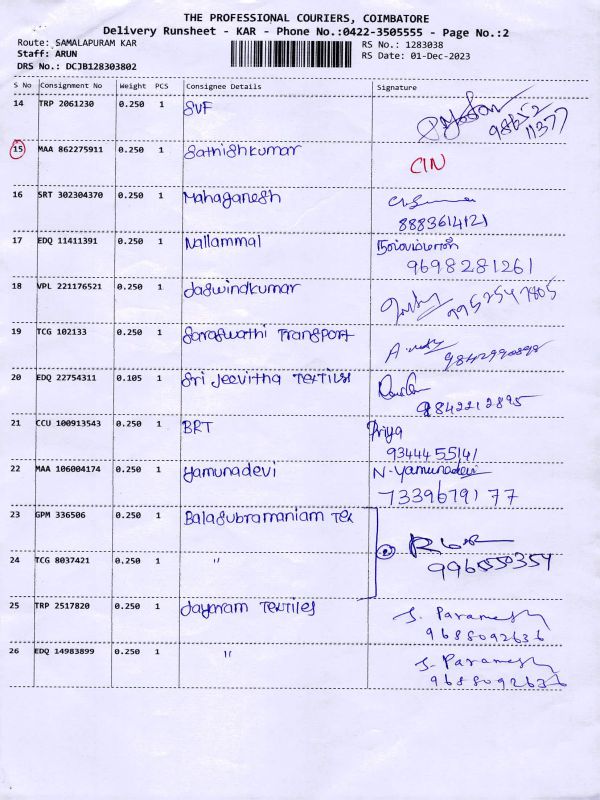 THE PROFESSIONAL COURIERS, COIMBATORE
Delivery Runsheet - KAR - Phone No.:0422-3505555 - Page No.:2
Route: SAMALAPURAM KAR
RS No.: 1283038
Staff: ARUN
RS Date: 01-Dec-2023
DRS No.: DCJB128303802
S No Consignment No Weight PCS Consignee Details Signature
14 TRP 2061230 0.250 1 SVF
98652
11377
15 MAA 862275911 0.250 1 Sathishkumar CIN
16 SRT 302304370 0.250 1 Mahaganesh
8883614121
17 EDQ 11411391 0.250 1 Nallammal நல்லம்மாள்
9698281261
18 VPL 221176521 0.250 1 Jaswindkumar
9952547805
19 TCG 102133 0.250 1 Saraswathi Transport
9842990898
20 EDQ 22754311 0.105 1 Sri Jeevitha Textiles
9842212895
21 CCU 100913543 0.250 1 BRT Priya
9344455141
22 MAA 106004174 0.250 1 yamunadevi N-yamunadevi
7339679177
23 GPM 336506 0.250 1 Balasubramaniam Tex
24 TCG 8037421 0.250 1 "
9965550354
25 TRP 2517820 0.250 1 Jayaram Textiles S. Paramesh
9688092636
26 EDQ 14983899 0.250 1 " S. Paramesh
9688092636